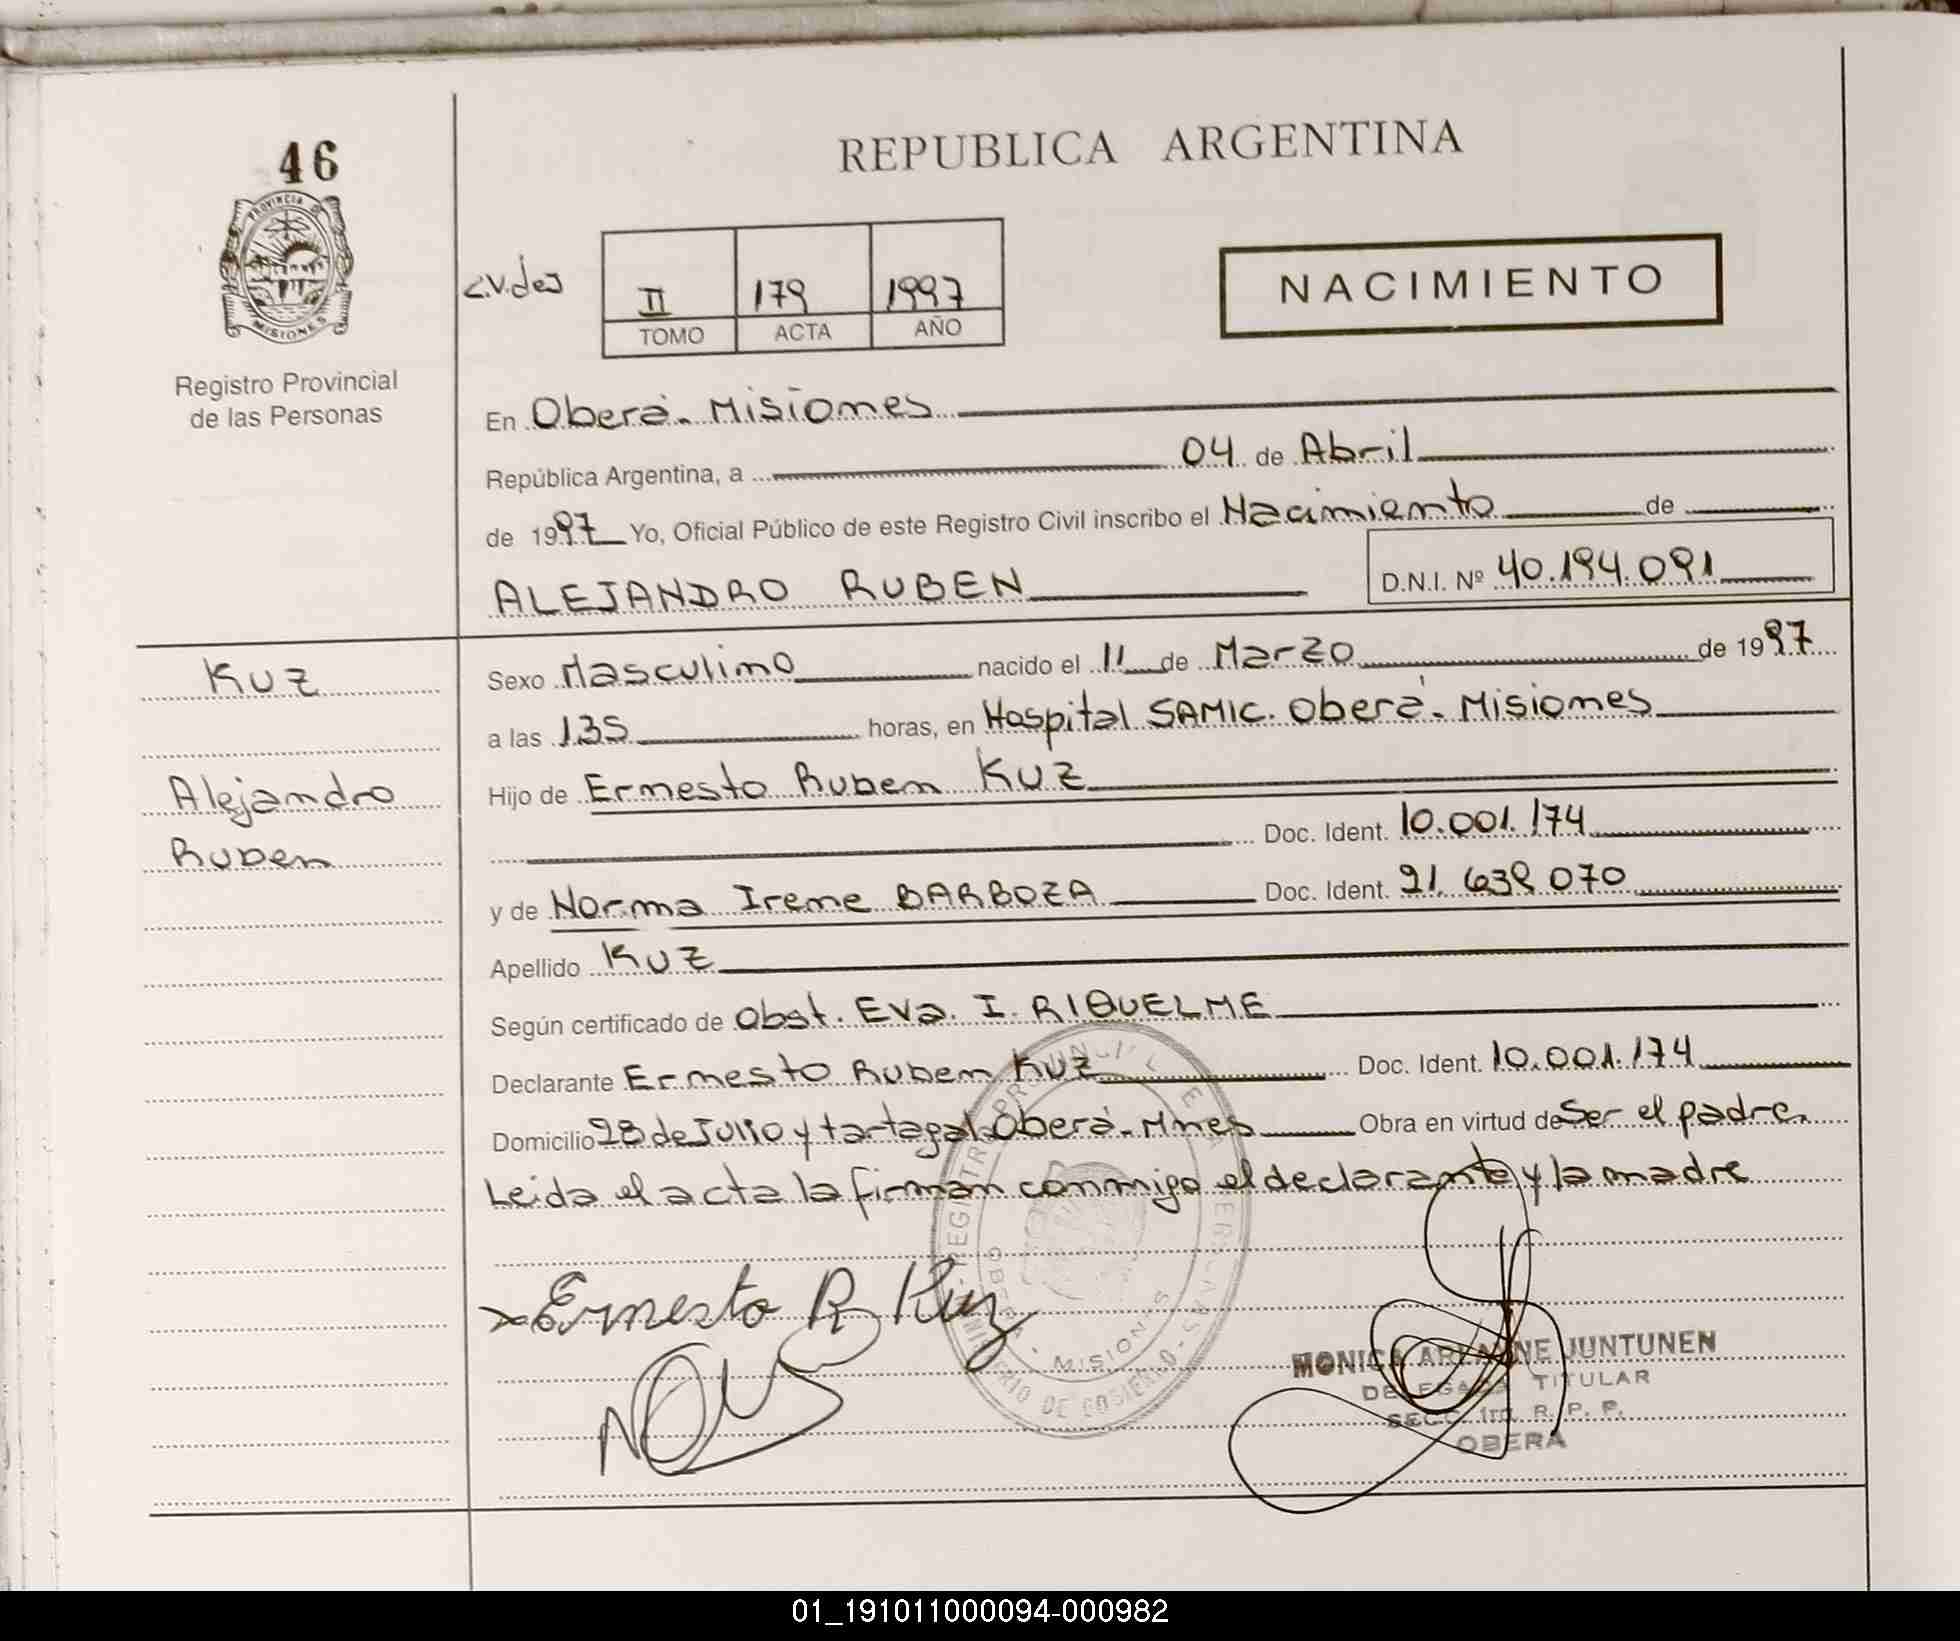 46
PROVINCIA DE
MISIONES
Registro Provincial
de las Personas
REPUBLICA ARGENTINA
II 179 1997
TOMO ACTA AÑO
NACIMIENTO
En Oberá. Misiones
República Argentina, a 04 de Abril
de 1997 Yo, Oficial Público de este Registro Civil inscribo el Nacimiento de
ALEJANDRO RUBEN D.N.I. Nº 40.194.091
Kuz
Alejandro
Ruben
Sexo Masculino nacido el 11 de Marzo de 1997
a las 135 horas, en Hospital SAMIC. Oberá. Misiones
Hijo de Ernesto Ruben KUZ
Doc. Ident. 10.001.174
y de Norma Irene BARBOZA Doc. Ident. 21.639.070
Apellido KUZ
Según certificado de Obst. Eva. I. RIQUELME
Declarante Ernesto Ruben KUZ Doc. Ident. 10.001.174
Domicilio 28 de Julio y tartagal. Oberá. Mnes Obra en virtud de Ser el padre.
Leida el acta la firman conmigo el declarante y la madre
Ernesto R Kuz
MISIONES
MONICA JUNTUNEN
DELEGADA TITULAR
SECC. 1ra. R. P. P.
OBERA
01_191011000094-000982